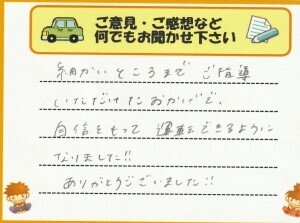 ご意見・ご感想など
何でもお聞かせ下さい
細かいところまで ご指導
いただけたおかげで、
自信をもって 運転できるように
なりました!!
ありがとうございました!!